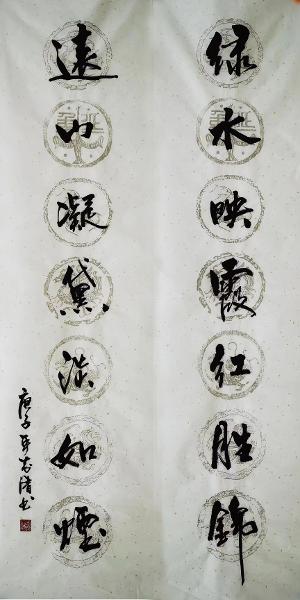 绿水映霞红胜錦
遠山凝黛淡如煙
庚子年志清书